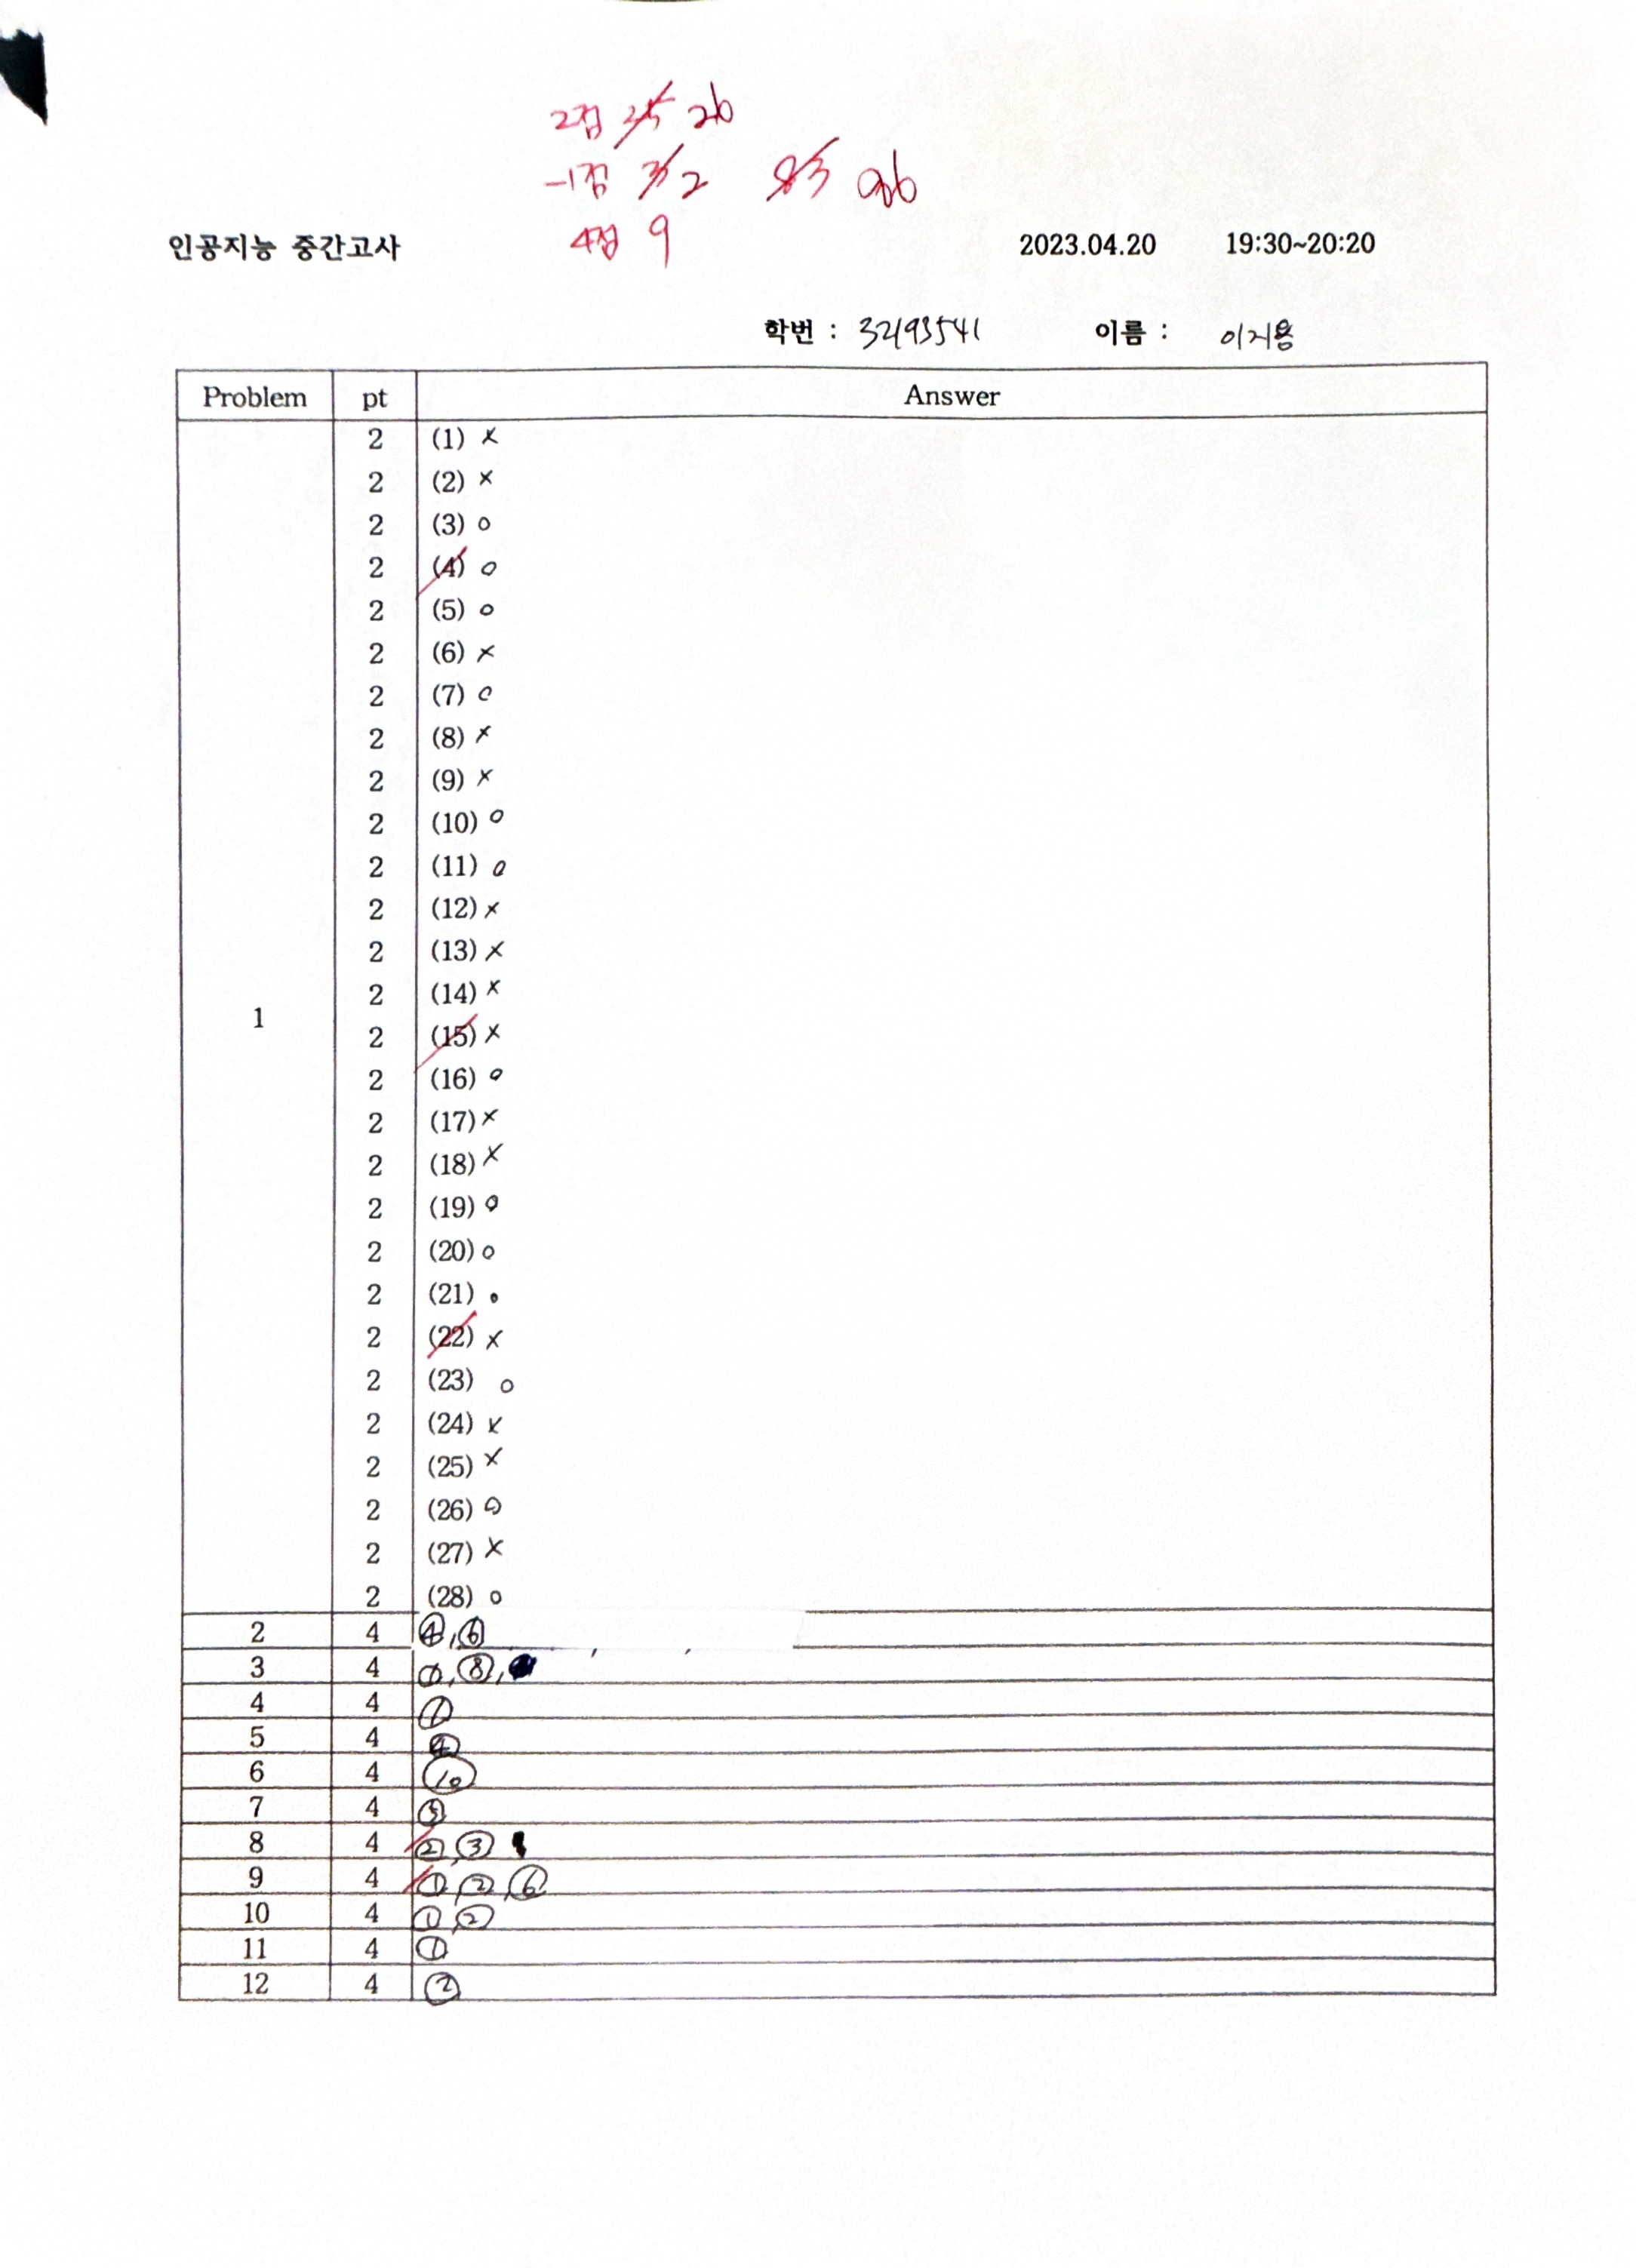 2점 35 26
-1점 3 2 83 96
4점 9
인공지능 중간고사 2023.04.20 19:30~20:20
학번 : 32193541 이름 : 이지용
Problem pt Answer
2 (1) x
2 (2) x
2 (3) o
2 (4) o
2 (5) o
2 (6) x
2 (7) o
2 (8) x
2 (9) x
2 (10) o
2 (11) o
2 (12) x
2 (13) x
2 (14) x
1
2 (15) x
2 (16) o
2 (17) x
2 (18) x
2 (19) o
2 (20) o
2 (21)
2 (22) x
2 (23) o
2 (24) x
2 (25) x
2 (26) o
2 (27) x
2 (28) o
2 4 ④,⑥
3 4 ①,⑧,
4 4 ①
5 4 ④
6 4 ⑩
7 4 ⑤
8 4 ②,③
9 4 ①,②,⑥
10 4 ①,②
11 4 ①
12 4 ②